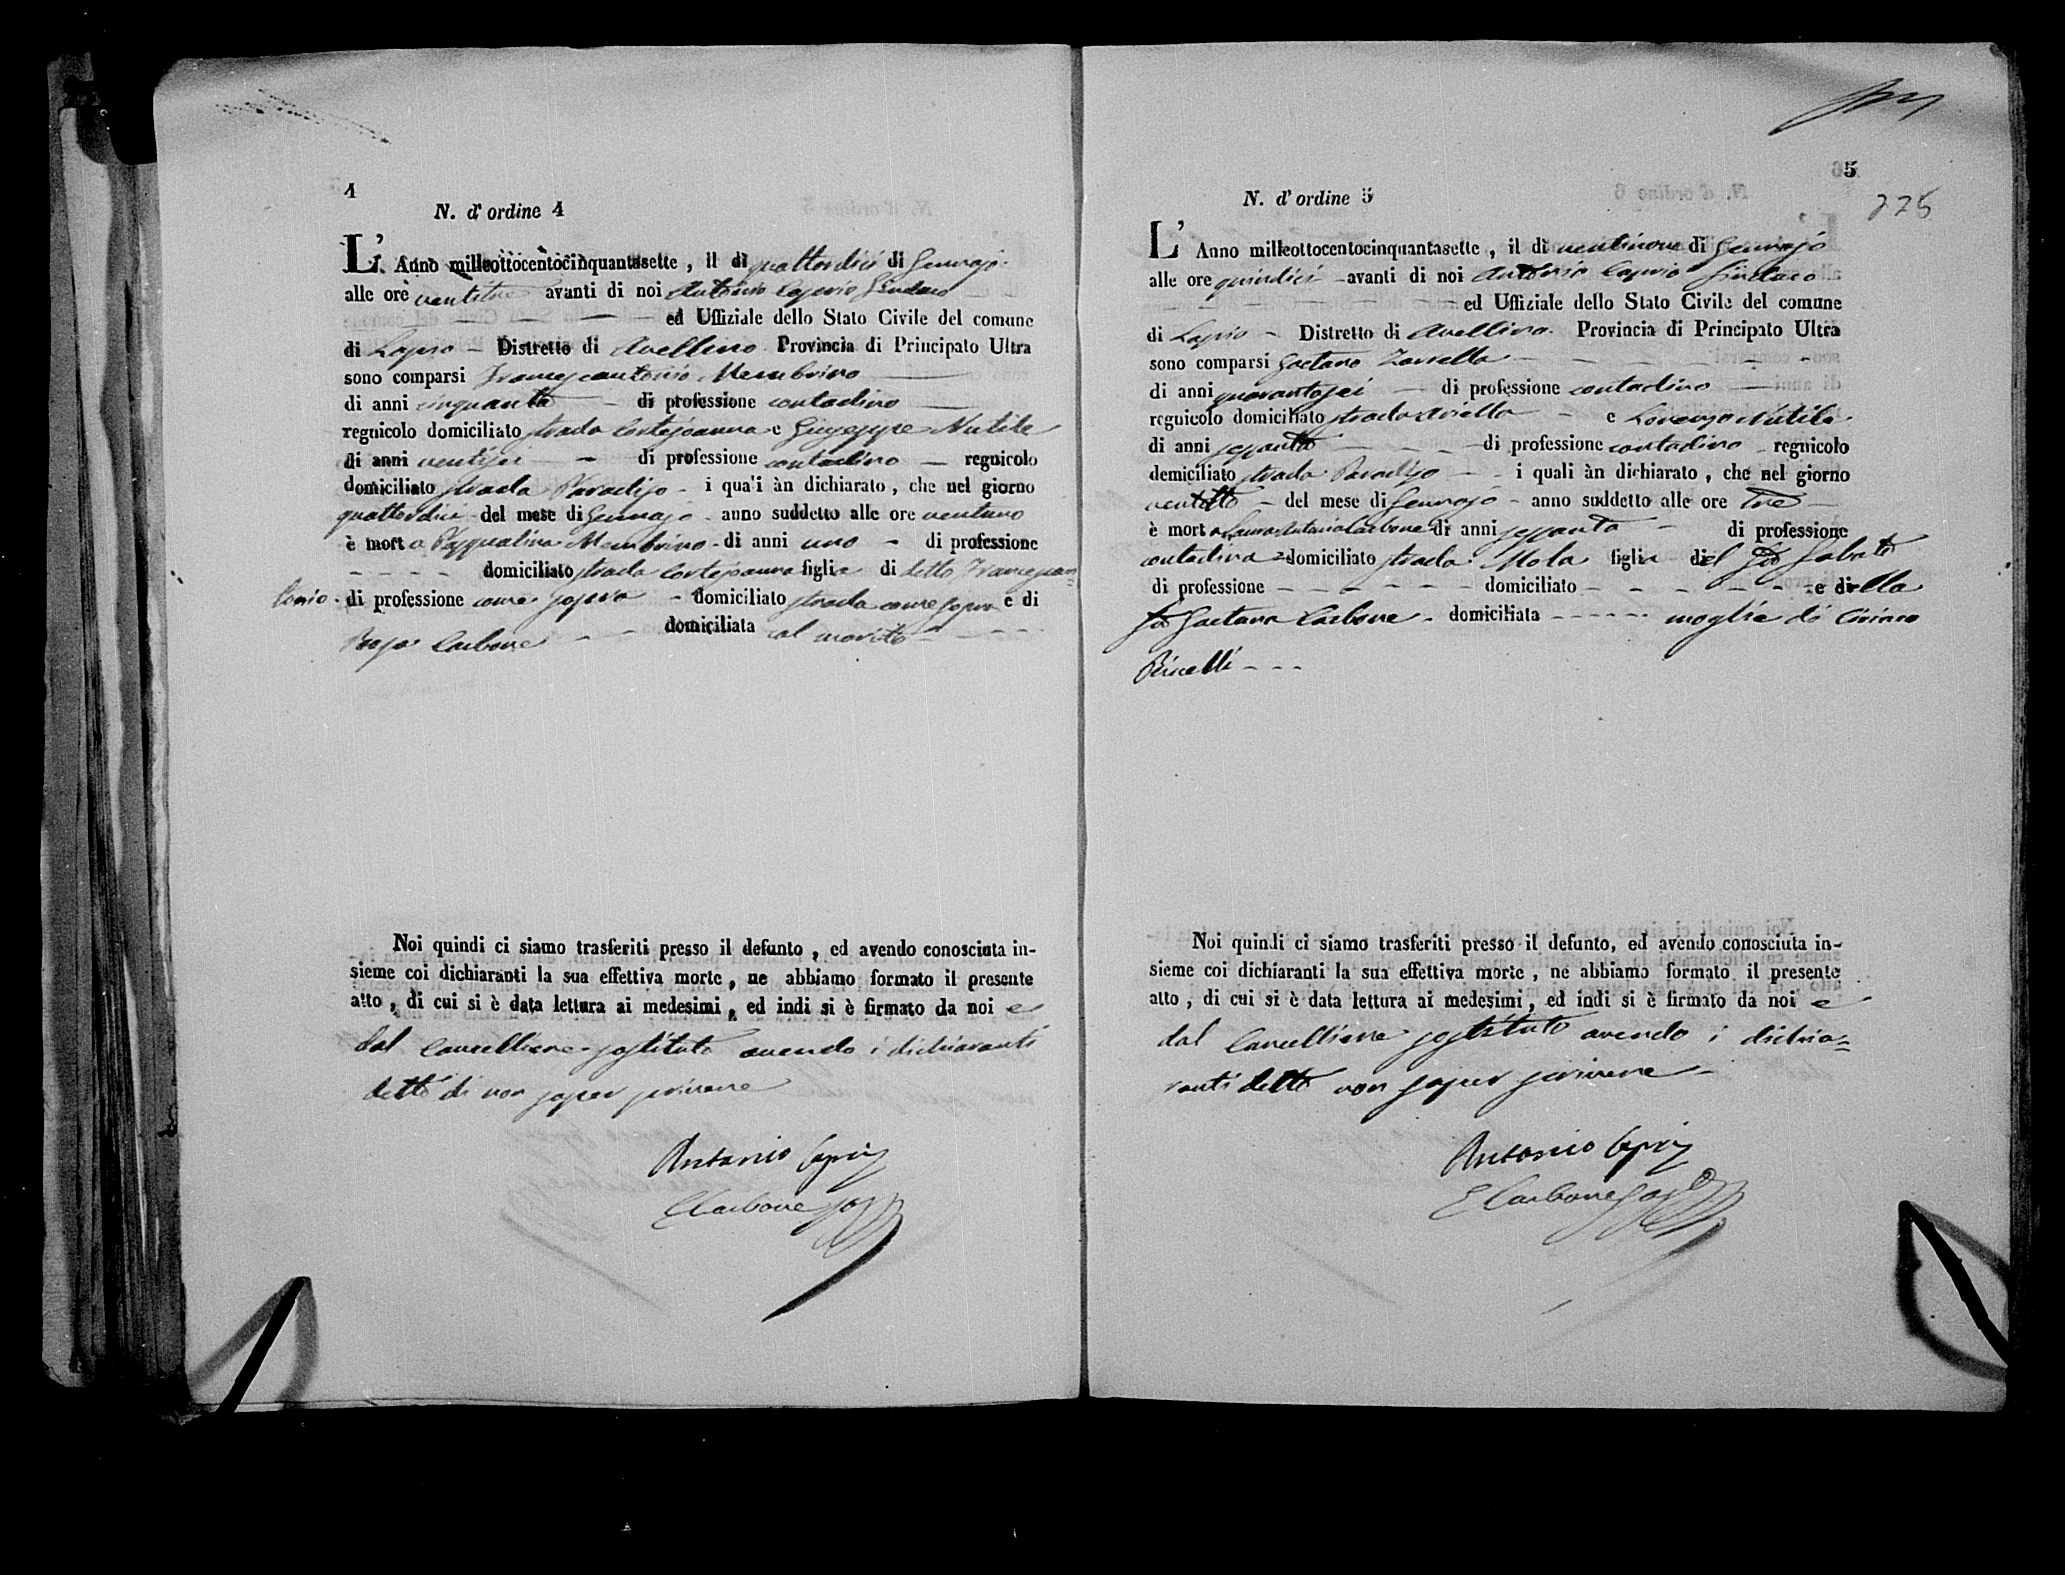 4
N. d' ordine 4
L' Anno milleottocentocinquantasette, il dì quattordici di Gennajo
alle ore ventitre avanti di noi Antonio Caprio Sindaco
ed Uffiziale dello Stato Civile del comune
di Lapio Distretto di Avellino Provincia di Principato Ultra
sono comparsi Francescantonio Membrino
di anni cinquanta di professione contadino
regnicolo domiciliato strada Cortejoanna e Giuseppe Nutile
di anni ventisei di professione contadino regnicolo
domiciliato strada Paradiso i quali àn dichiarato, che nel giorno
quattordici del mese di Gennajo anno suddetto alle ore ventuno
è morta Pasqualina Membrino di anni uno di professione
domiciliato strada Cortejoanna figlia di detto Francescan=
tonio di professione come sopra domiciliato strada come sopra e di
Rosa Carbone domiciliata col marito
Noi quindi ci siamo trasferiti presso il defunto, ed avendo conosciuta in-
sieme coi dichiaranti la sua effettiva morte, ne abbiamo formato il presente
atto, di cui si è data lettura ai medesimi, ed indi si è firmato da noi e
dal Cancelliere sostituto avendo i dichiaranti
detto di non saper scrivere
Antonio Caprio
E Carbone
5
275
N. d' ordine 5
L' Anno milleottocentocinquantasette, il dì ventinove di Gennajo
alle ore quindici avanti di noi Antonio Caprio Sindaco
ed Uffiziale dello Stato Civile del comune
di Lapio Distretto di Avellino Provincia di Principato Ultra
sono comparsi Gaetano Zarrella
di anni quarantasei di professione contadino
regnicolo domiciliato strada Ariella e Lorenzo Nutile
di anni sessanta di professione contadino regnicolo
domiciliato strada Paradiso i quali àn dichiarato, che nel giorno
ventotto del mese di Gennajo anno suddetto alle ore tre
è morta Laurantonia Carbone di anni sessanta di professione
contadina domiciliato strada Mola figlia del fù Sabato
di professione domiciliato e della
fù Gaetana Carbone domiciliata moglie di Ciriaco
Rinelli
Noi quindi ci siamo trasferiti presso il defunto, ed avendo conosciuta in-
sieme coi dichiaranti la sua effettiva morte, ne abbiamo formato il presente
atto, di cui si è data lettura ai medesimi, ed indi si è firmato da noi e
dal Cancelliere sostituto avendo i dichia=
ranti detto non saper scrivere
Antonio Caprio
E Carbone